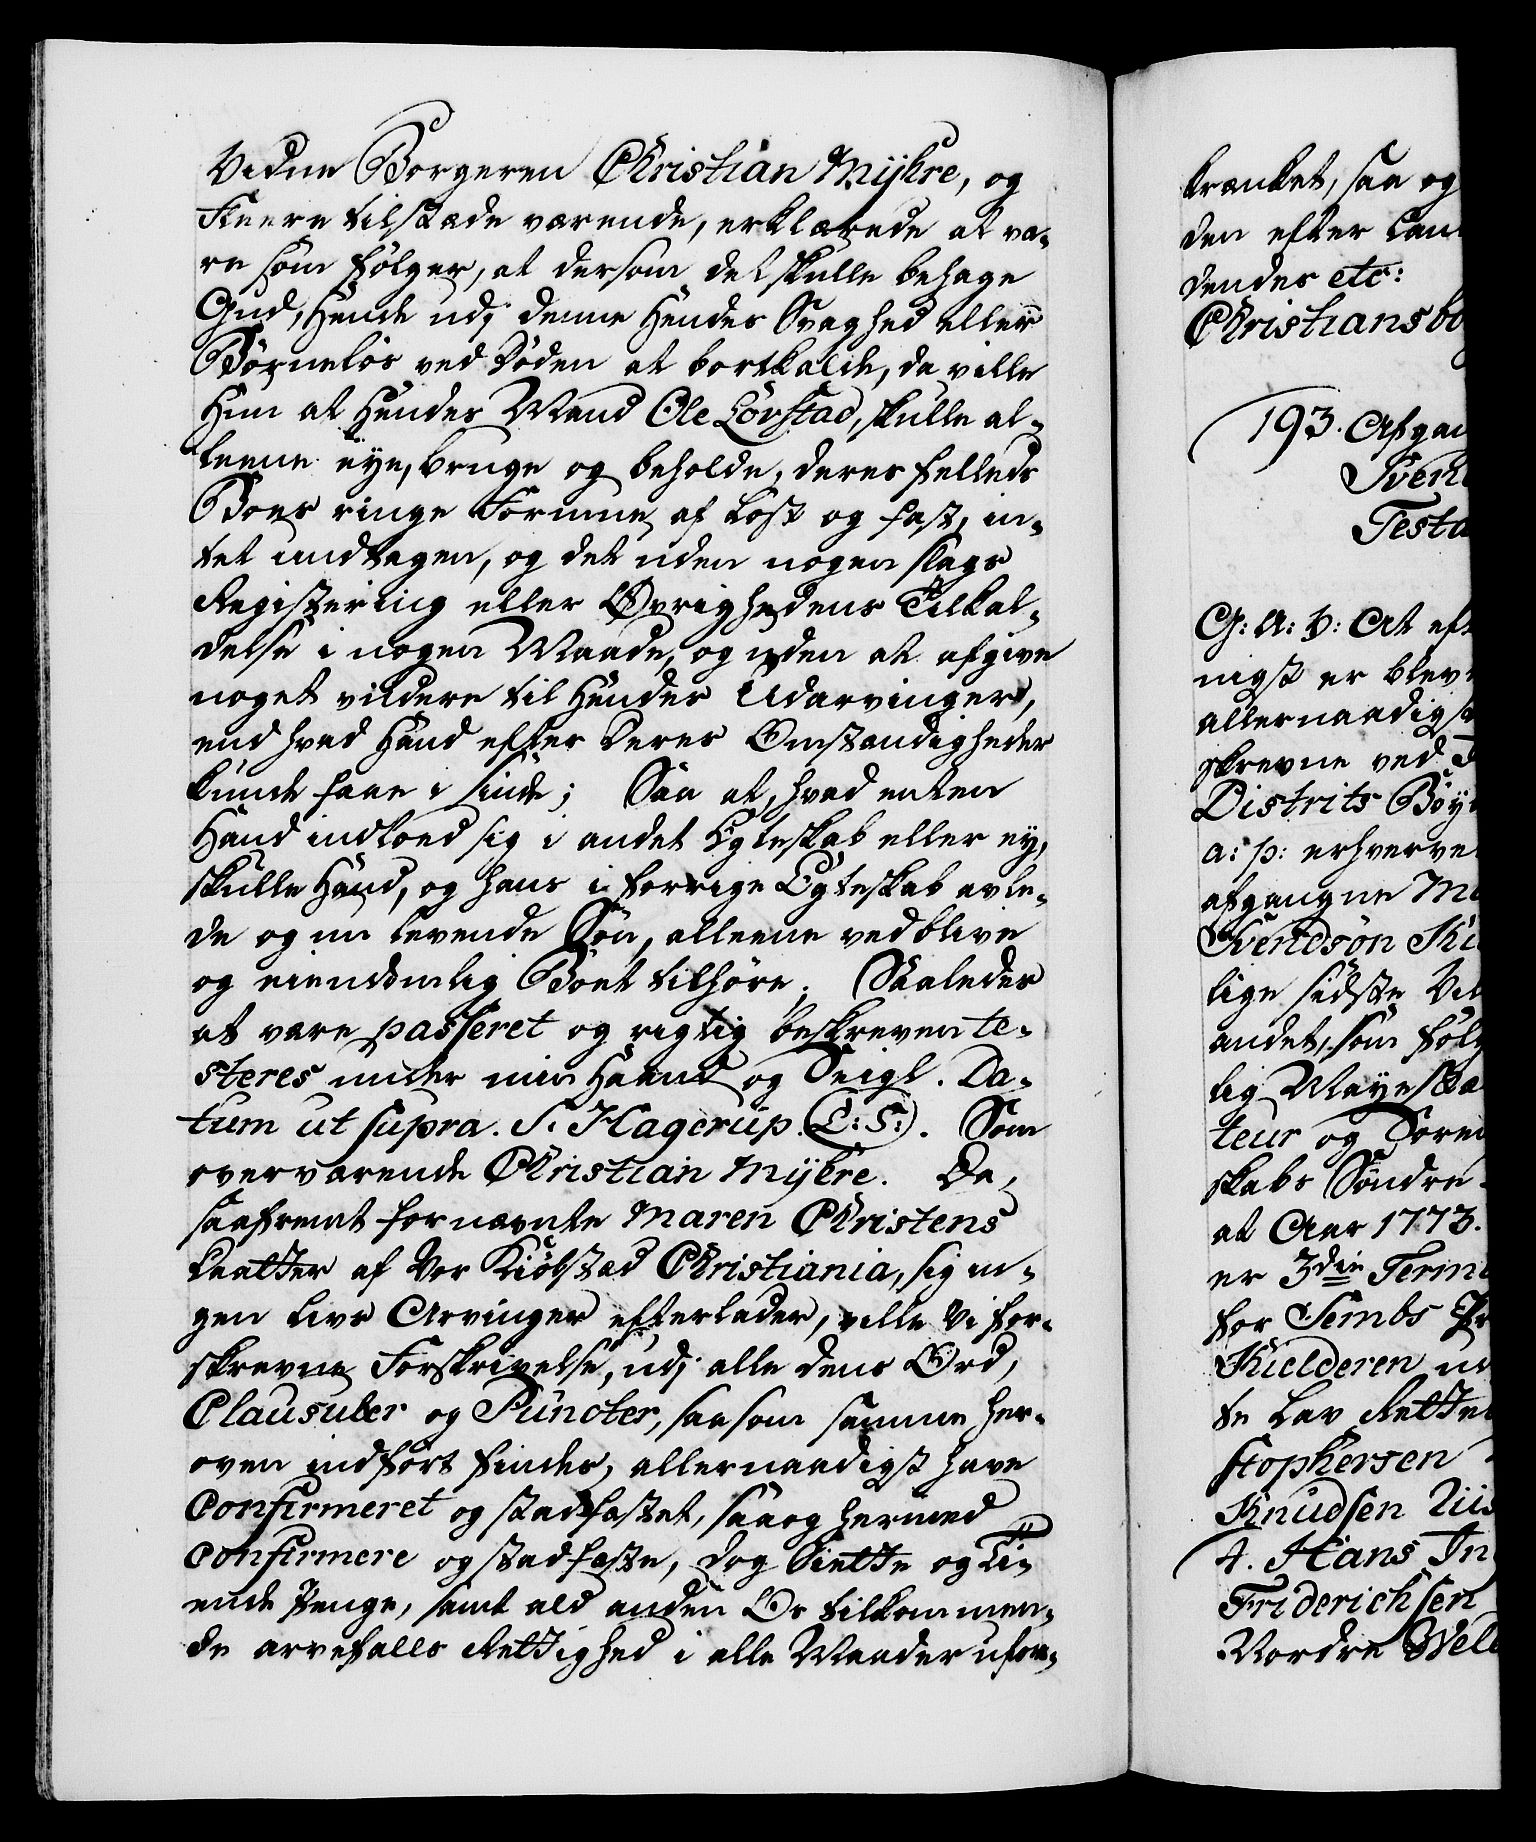 Vidne Borgeren Christian Mÿhre, og
Fleere tilstæde værende, erklærede at væ-
re som følger, at dersom det skulle behage
Gud, Hende udj denne Hendes Svaghed eller
Børneløs ved Døden at bortkalde, da ville
Hun at Hendes Mand Ole Lørstad, skulle al-
leene eÿe, bruge og beholde, deres fælleds
Boes ringe Formue, af Løst og fast, in-
tet undtagen, og det uden nogen slags
Registering eller Øvrighedens Tilkal-
delse i nogen Maade, og uden at afgive
noget viidere til Hendes Udarvinger,
end hvad Hand efter deres Omstændigheder
kunde faae i Sinde; Saa at, hvad enten
Hand indloed sig i andet Egteskab eller ej,
skulle Hand, og hans i forrige Egteskab avle-
de og nu levende Søn, alleene vedblive
og eiendomlig Boet tilhøre. Saaledes
at være passeret og rigtig beskreven te-
steres under min Haand og Seigl. Da-
tum ut supra. S. Hagerup. (L:S:). Som
overværende Christian Mÿhre. Da,
saafremt fornævnte Maren Christens
Daatter af Vor Kiøbstæd Christiania, sig in-
gen Livs Arvinger efterlader, ville Vi for-
skrevne Forskrivelse, udj alle dens Ord,
Clausuler og Puncter, saasom samme her-
oven indført findes, allernaadigst have
Confirmeret og stadfæstet, saa og hermed
Confirmere og stadfæste, dog Siette og Ti-
ende Penge, samt ald anden Os tilkommen-
de arvefalds Rettighed i alle Maader ufor-
krænket, saa og
den efter Lan
dendes etc:
Christiansbo
193. Afgan
Svend
Testa
G: A: V: At eft
nigst er blev
allernaadigst
skrevne ved
Distrits Bøy
a: p: erhverve
afgangne Ma
Svendsøn Ki
lige sidste Vil
andet, som følg
lig Mayestæ
teur og Soren
skabs Søndre
at Aar 1773.
er 3die Termi
for Sembs Pr
Kielderen
te Lav Rettes
stophersen
Knudsen
4. Hans In
Friderichsen
Nordre Wel